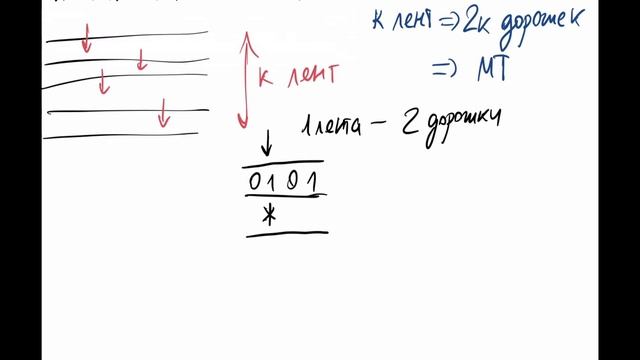 к лент ⇒ 2к дорожек
⇒ МТ
к лент
1 лента – 2 дорожки
0101
*